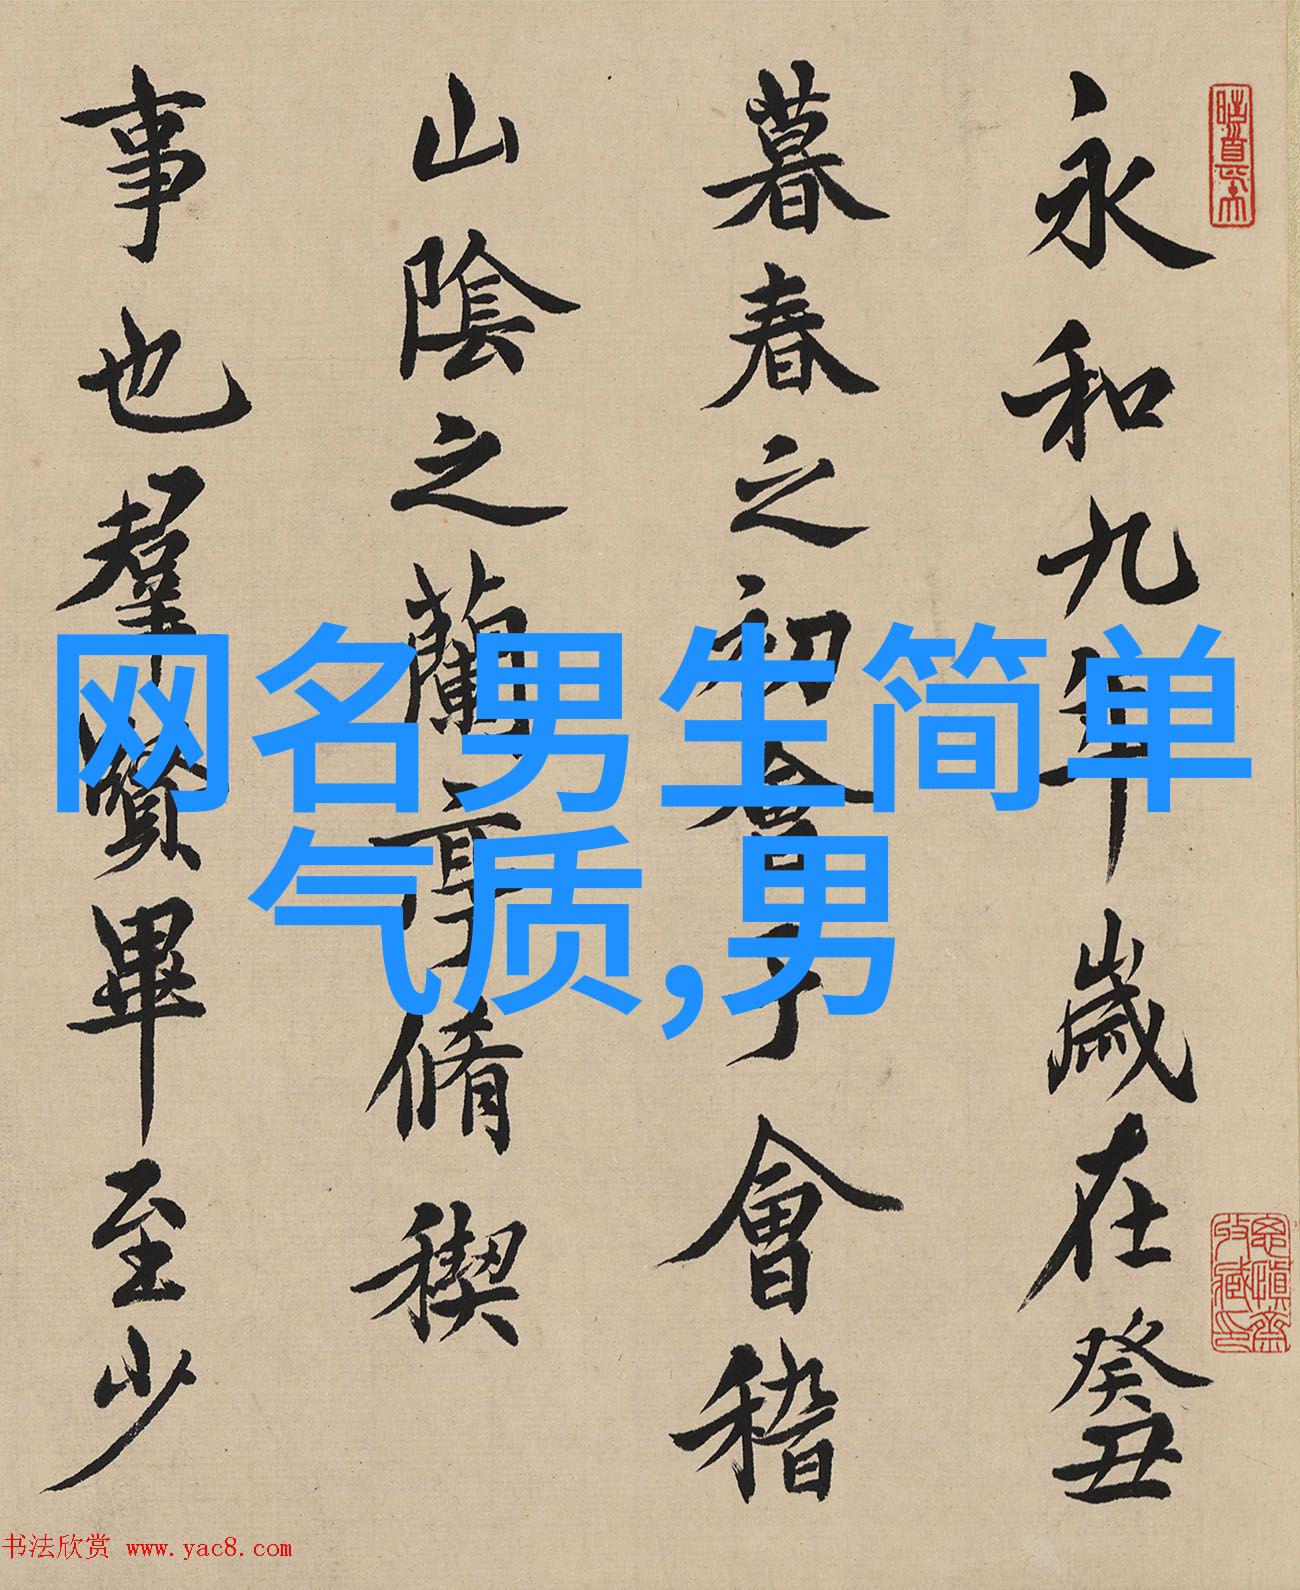 永和九年歲在癸丑
暮春之初會于會稽
山陰之蘭亭脩稧
事也羣賢畢至少
网名男生简单
气质,男
书法欣赏 www.yac8.com